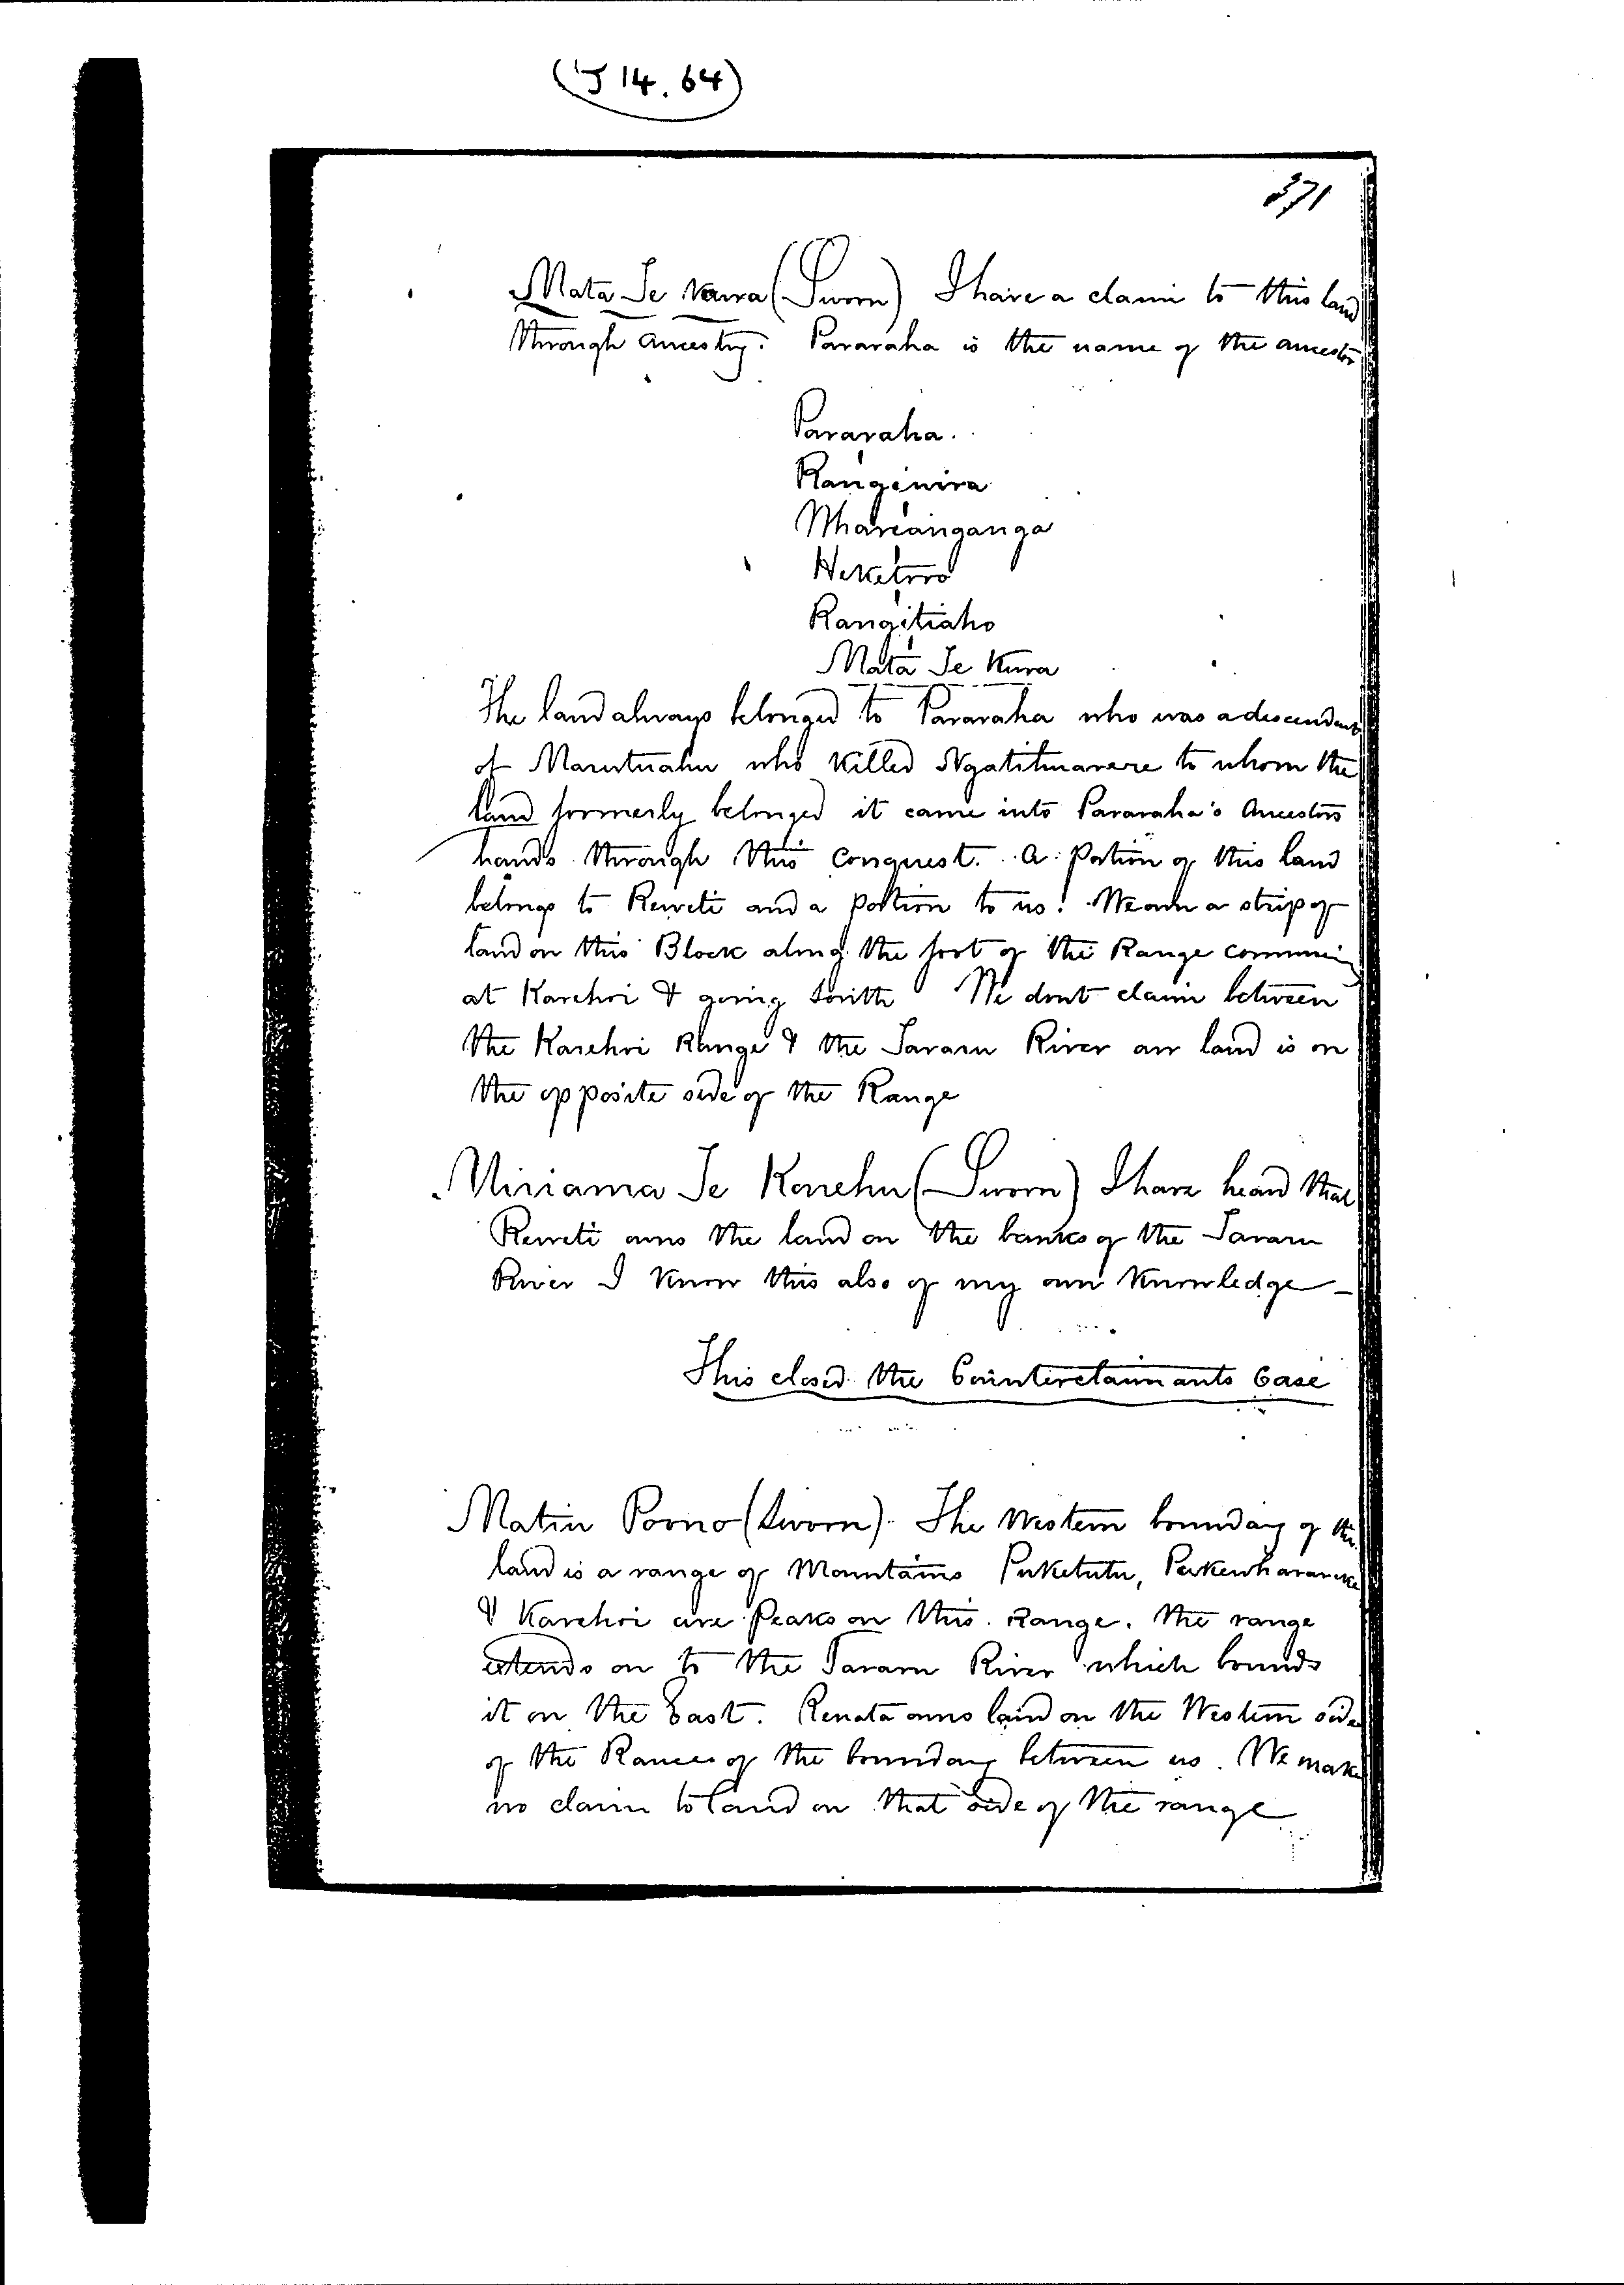 (J 14. 64)
371
Mata Te Kura (Sworn) I have a claim to this land
through ancestry. Pararaha is the name of the ancestor
Pararaha.
Rangiwira
Whareanganga
Heketoro
Rangitiaho
Mata Te Kura
The land always belonged to Pararaha who was a descendent
of Marutuahu who killed Ngatihuarere to whom the
land formerly belonged it came into Pararaha's Ancestors
hands through this conquest. A portion of this land
belongs to Reweti and a portion to us. We own a strip of
land on this Block along the foot of the Range
at Karehoi & going South We dont claim between
the Karehoi Range & the Tararu River our land is on
the opposite side of the Range
Miriama Te Karehu (Sworn) I have heard that
Reweti owns the land on the banks of the Tararu
River I know this also of my own knowledge _
This closed the Counterclaimants Case
Matiu Poono (Sworn). The Western boundary of the
land is a range of Mountains Puketutu,
& Karehoi are Peaks on this Range. The range
extends on to the Tararu River which bounds
it on the East. Renata owns land on the Western side
of the Range of the boundary between us. We make
no claim to land on that side of the range